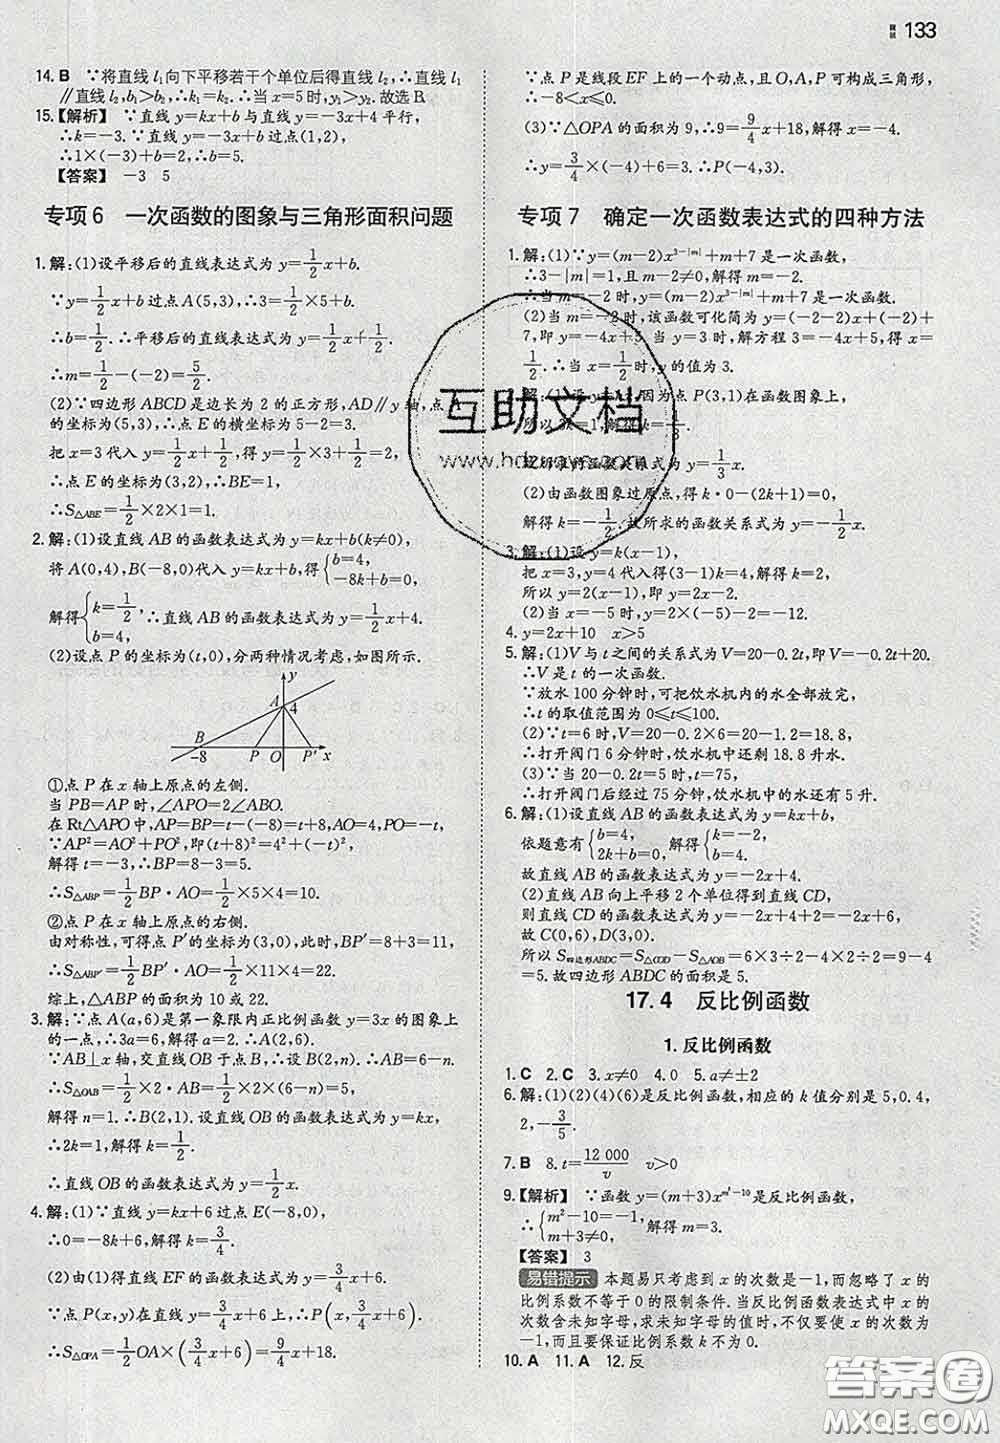 133
14. B ∵将直线 l₁向下平移若干个单位后得直线 l₂,∴直线 l₁
∥直线 l₂,b₁>b₂,∴k₁=k₂.∴当 x=5时,y₁>y₂.故选 B.
15.【解析】 ∵直线 y=kx+b 与直线 y=-3x+4 平行,
∴k=-3.∵直线 y=-3x+b 过点(1,2),
∴1×(-3)+b=2,∴b=5.
【答案】 -3 5
专项 6 一次函数的图象与三角形面积问题
1.解:(1)设平移后的直线表达式为 y=1/2x+b.
∵y=1/2x+b 过点 A(5,3),∴3=1/2×5+b.
∴b=1/2.∴平移后的直线表达式为 y=1/2x+1/2.
∴m=1/2-(-2)=5/2.
(2)∵四边形 ABCD 是边长为 2 的正方形,AD∥y 轴,点 A
的坐标为(5,3),∴点 E 的横坐标为 5-2=3.
把 x=3 代入 y=1/2x+1/2,得 y=1/2×3+1/2=2.
∴点 E 的坐标为(3,2),∴BE=1.
∴S△ABE=1/2×2×1=1.
2.解:(1)设直线 AB 的函数表达式为 y=kx+b(k≠0).
将 A(0,4),B(-8,0)代入 y=kx+b,得{b=4, -8k+b=0.
解得{k=1/2, b=4, ∴直线 AB 的函数表达式为 y=1/2x+4.
(2)设点 P 的坐标为(t,0),分两种情况考虑,如图所示.
y
A 4
B
-8 P O P′ x
①点 P 在 x 轴上原点的左侧.
当 PB=AP 时,∠APO=2∠ABO.
在 Rt△APO 中,AP=BP=t-(-8)=t+8,AO=4,PO=-t.
∵AP²=AO²+PO²,即(t+8)²=4²+(-t)²,
解得 t=-3,∴BP=8-3=5.
∴S△ABP=1/2BP·AO=1/2×5×4=10.
②点 P 在 x 轴上原点的右侧.
由对称性,可得点 P′的坐标为(3,0),此时,BP′=8+3=11,
∴S△ABP′=1/2BP′·AO=1/2×11×4=22.
综上,△ABP 的面积为 10 或 22.
3.解:∵点 A(a,6)是第一象限内正比例函数 y=3x 的图象上
的一点,∴3a=6,解得 a=2.∴A(2,6).
∵AB⊥x 轴,交直线 OB 于点 B,∴设 B(2,n).∴AB=6-n.
∴S△OAB=1/2×2·AB=1/2×2×(6-n)=5,
解得 n=1.∴B(2,1).设直线 OB 的函数表达式为 y=kx,
∴2k=1,解得 k=1/2.
∴直线 OB 的函数表达式为 y=1/2x.
4.解:(1)∵直线 y=kx+6 过点 E(-8,0),
∴0=-8k+6,∴k=3/4.
(2)由(1)得直线 EF 的函数表达式为 y=3/4x+6.
∵点 P(x,y)在直线 y=3/4x+6 上,∴点 P(x,3/4x+6).
∴S△OPA=1/2OA×(3/4x+6)=9/4x+18.
∵点 P 是线段 EF 上的一个动点,且 O,A,P 可构成三角形,
∴-8<x≤0.
(3)∵△OPA 的面积为 9,∴9=9/4x+18,解得 x=-4.
∴y=3/4×(-4)+6=3.∴P(-4,3).
专项 7 确定一次函数表达式的四种方法
1.解:(1)∵y=(m-2)x^{3-|m|}+m+7 是一次函数,
∴3-|m|=1,且 m-2≠0,解得 m=-2.
∴当 m=-2 时,y=(m-2)x^{3-|m|}+m+7 是一次函数.
(2)当 m=-2 时,该函数可化简为 y=(-2-2)x+(-2)+
7,即 y=-4x+5.当 y=3 时,解方程 3=-4x+5,得 x=
1/2.∴当 x=1/2时,y 的值为 3.
解:(1) 因为点 P(3,1)在函数图象上,
所以 3k=1,解得 k=1/3.
故所求的函数关系式为 y=1/3x.
(2)由函数图象过原点,得 k·0-k-1/2=0,
解得 k=-1/2.故所求的函数关系式为 y=-1/2x.
3.解:(1)设 y=k(x-1),
把 x=3,y=4 代入得(3-1)k=4,解得 k=2,
所以 y=2(x-1),即 y=2x-2.
(2)当 x=-5 时,y=2×(-5)-2=-12.
4. y=2x+10 x>5
5.解:(1)V 与 t 之间的关系式为 V=20-0.2t,即 V=-0.2t+20.
∴V 是 t 的一次函数.
∵放水 100 分钟时,可把饮水机内的水全部放完,
∴t 的取值范围为 0≤t≤100.
(2)∵t=6 时,V=20-0.2×6=20-1.2=18.8,
∴打开阀门 6 分钟时,饮水机中还剩 18.8 升水.
(3)∵当 20-0.2t=5 时,t=75,
∴打开阀门后经过 75 分钟,饮水机中的水还有 5 升.
6.解:(1)设直线 AB 的函数表达式为 y=kx+b,
依题意有{b=4, 2k+b=0, 解得{k=-2, b=4.
故直线 AB 的函数表达式为 y=-2x+4.
(2)直线 AB 向上平移 2 个单位得到直线 CD,
则直线 CD 的函数表达式为 y=-2x+4+2=-2x+6.
故 C(0,6),D(3,0).
所以 S四边形ABDC=S△COD-S△AOB=6×3÷2-4×2÷2=9-4
=5.故四边形 ABDC 的面积是 5.
17.4 反比例函数
1.反比例函数
1. C 2. C 3. x≠0 4. 0 5. a≠±2
6.解:(1)(2)(4)(6)是反比例函数,相应的 k 值分别是 5,0.4,
2,-3/5.
7. B 8. t=12 000/v v>0
9.【解析】 ∵函数 y=(m+3)x^{m²-10}是反比例函数,
∴{m²-10=-1, m+3≠0, 解得 m=3.
【答案】 3
易错提示 本题易只考虑到 x 的次数是-1,而忽略了 x 的
比例系数不等于 0 的限制条件.当反比例函数表达式中 x 的
次数含未知字母,求未知字母的值时,不仅要使 x 的次数为
-1,而且要保证比例系数 k 不为 0.
10. A 11. A 12. 反
互助文档
答案圈
MXQE.COM